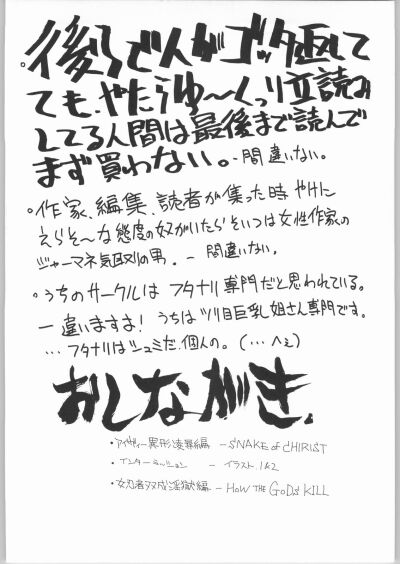 。後ろで人がゴッタ返して
ても、やたらゆ〜くっり立読み
してる人間は最後まで読んで
まず買わない。- 間違いない。
。作家、編集、読者が集った時 やけに
えらそ〜な態度の奴がいたらそいつは女性作家の
ジャーマネ気取りの男。- 間違いない。
。うちのサークルは フタナリ専門だと思われている。
— 違いますよ! うちはツリ目巨乳姐さん専門です。
… フタナリはシュミだ、個人の。(…へぇ)
おしながき。
・異形凌辱編 - SNAKE of CHIRIST
・インターミッション - イラスト 1&2
・女忍者双成淫獄編 - HOW THE GODS KILL